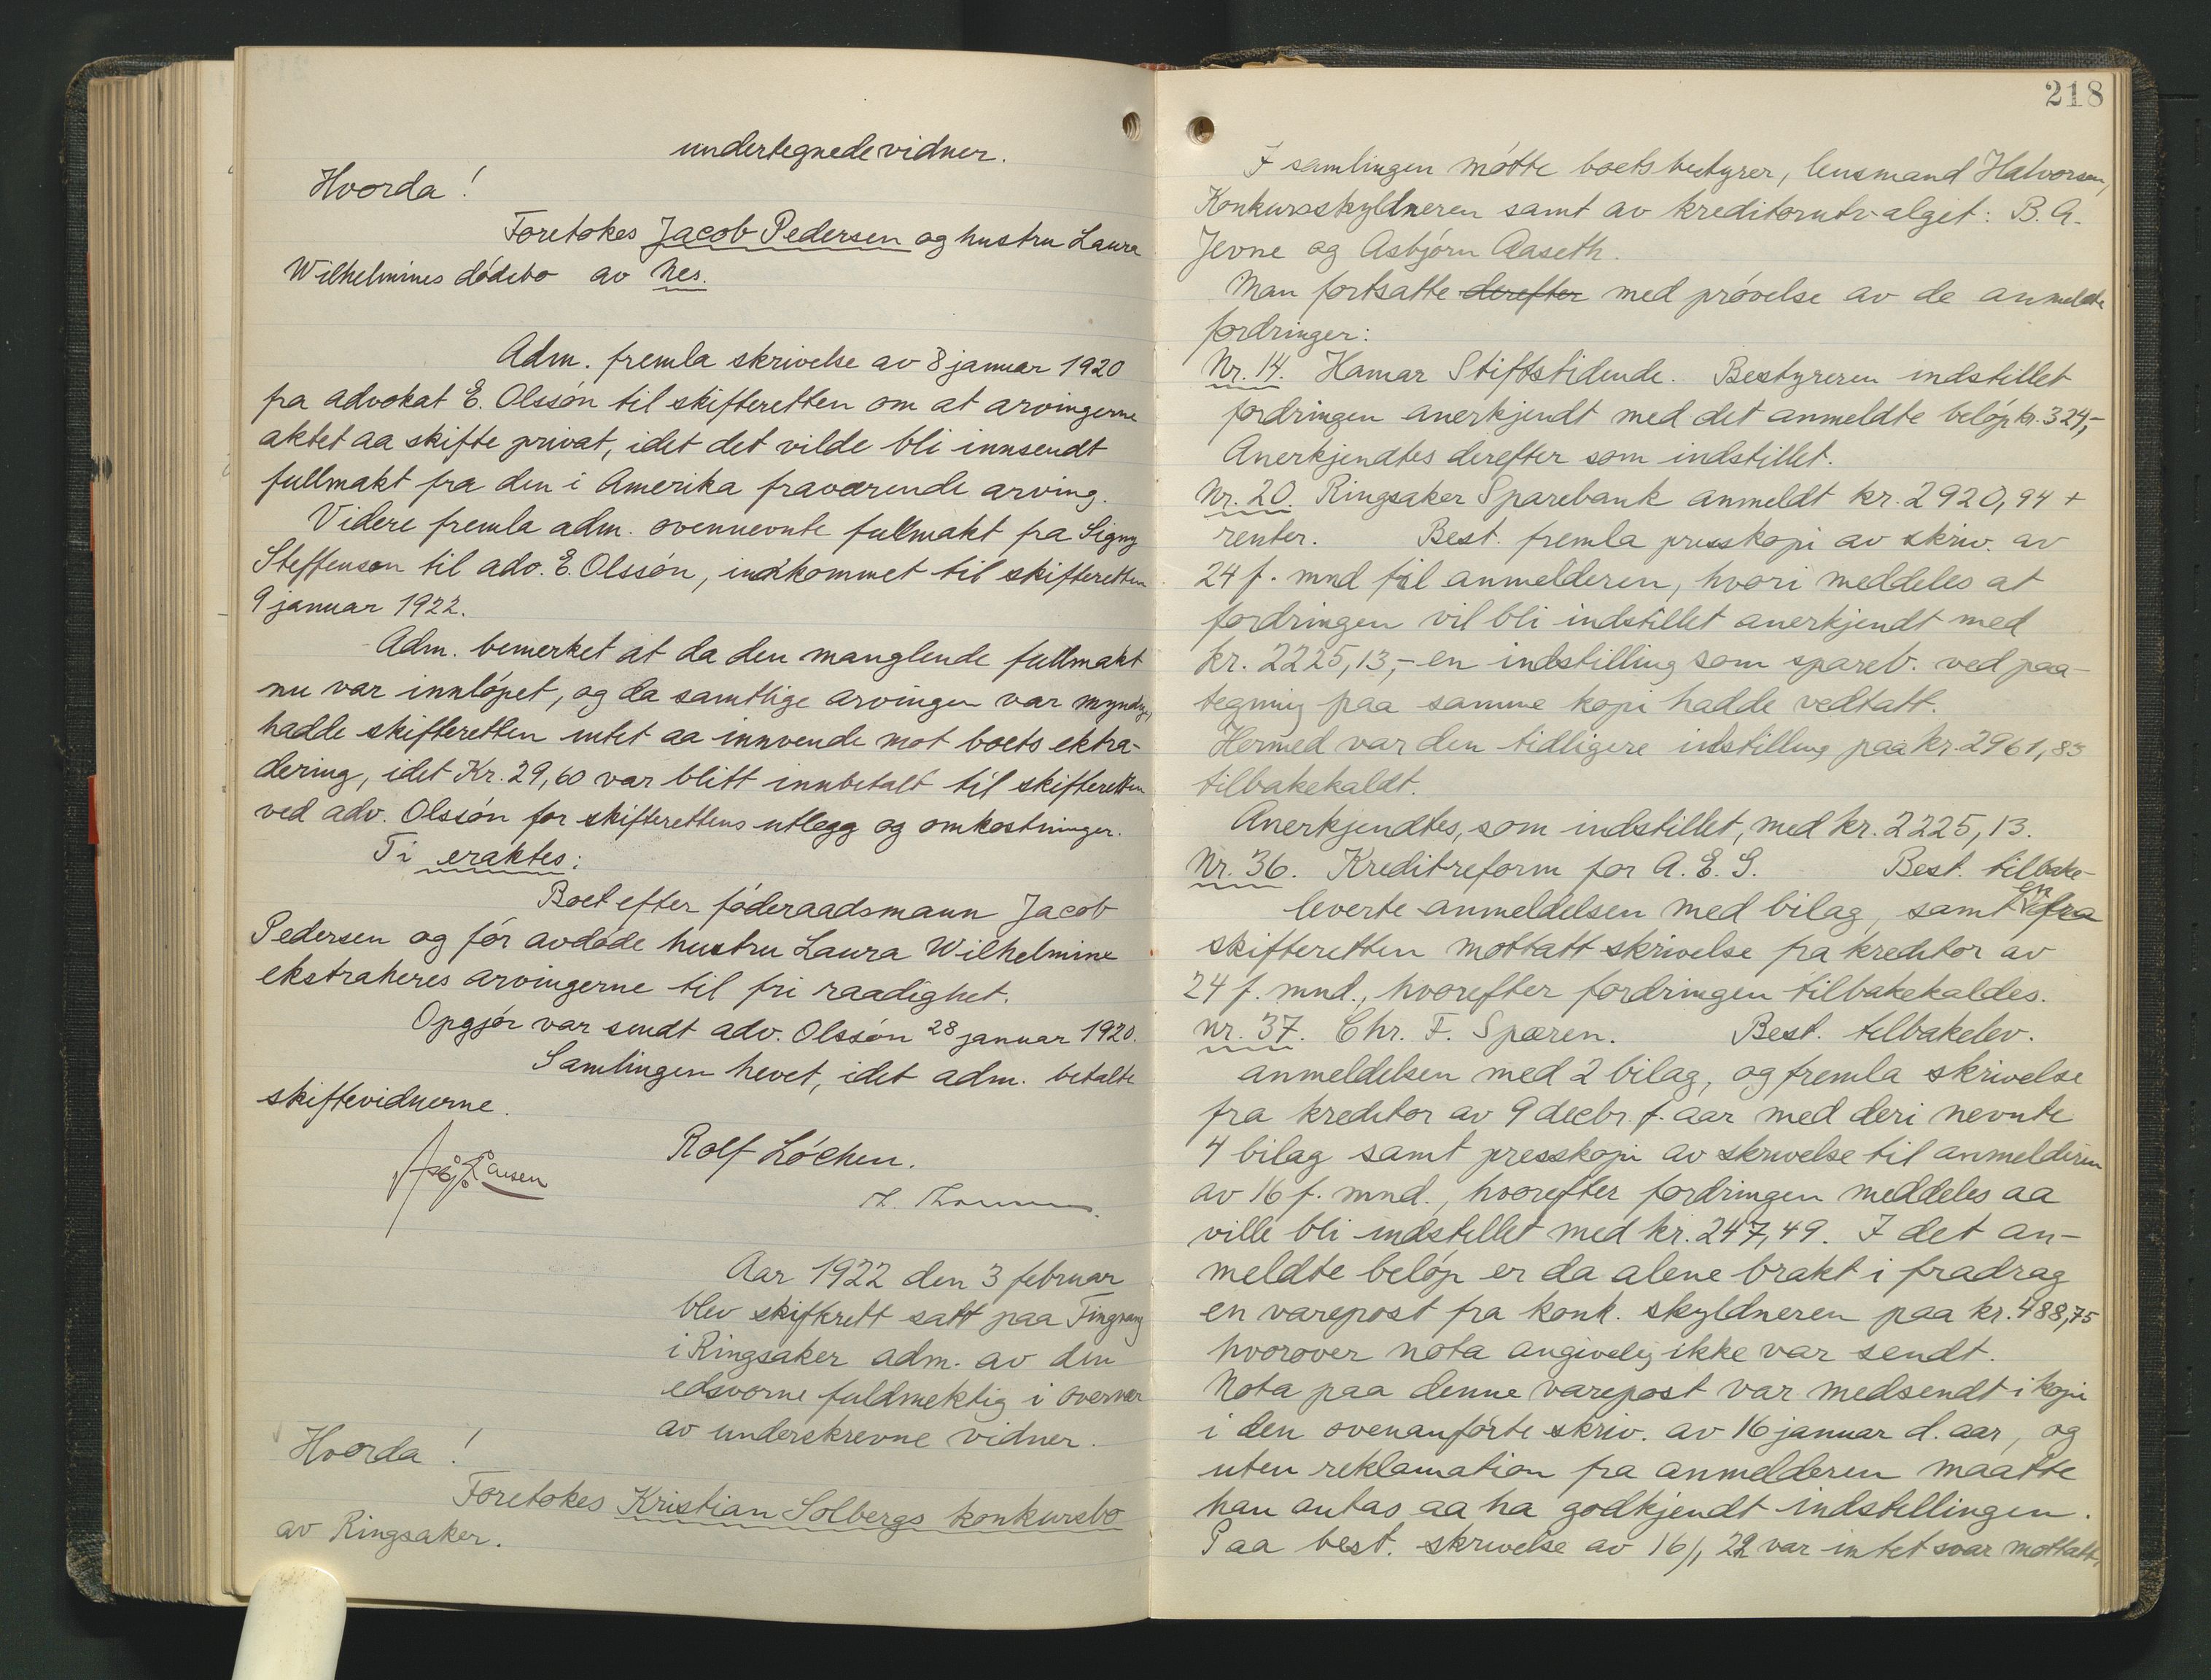 undertegnede vidner.
Hvorda!
Foretokes Jacob Pedersen og hustru Laura
Wilhelmines dødsbo av Nes.
Adm. fremla skrivelse av 8 januar 1920
fra advokat E. Olssøn til skifteretten om at arvingerne
aktet aa skifte privat, idet det vilde bli innsendt
fullmakt fra den i Amerika fraværende arving.
Videre fremla adm. ovennevnte fullmakt fra Signy
Steffenson til adv. E. Olssøn, indkommet til skifteretten
9 januar 1922.
Adm. bemerket at da den manglende fullmakt
nu var innløpet, og da samtlige arvinger var myndige,
hadde skifteretten intet aa innvende mot boets ektra-
dering, idet Kr. 29,60 var blitt innbetalt til skifteretten
ved adv. Olssøn for skifterettens utlegg og omkostninger.
Ti eraktes:
Boet efter føderaadsmann Jacob
Pedersen og før avdøde hustru Laura Wilhelmine
ekstraheres arvingerne til fri raadighet.
Opgjør var sendt adv. Olssøn 28 januar 1920.
Samlingen hevet, idet adm. betalte
skiftevidnerne.
Rolf Løchen.
Larsen
Aar 1922 den 3 februar
blev skifterett satt paa Tingvang
i Ringsaker adm. av den
edsvorne fuldmektig i overvær
av underskrevne vidner.
Hvorda!
Foretokes Kristian Solbergs konkursbo
av Ringsaker.
218
I samlingen møtte boets bestyrer, lensmand Halvorsen,
Konkursskyldneren samt av kreditorutvalget: B. A.
Jevne og Asbjørn Aaseth.
Man fortsatte derefter med prøvelse av de anmeldte
fordringer:
Nr. 14. Hamar Stiftstidende. Bestyreren indstillet
fordringen anerkjendt med det anmeldte beløp kr. 324,-
Anerkjendtes derefter som indstillet.
Nr. 20. Ringsaker Sparebank anmeldt kr. 2920,94 +
renter. Best. fremla presskopi av skriv. av
24 f. mnd til anmelderen, hvori meddeles at
fordringen vil bli indstillet anerkjendt med
kr. 2225,13,- en indstilling som spareb. ved paa-
tegning paa samme kopi hadde vedtatt.
Hermed var den tidligere indstilling paa kr. 2961,83
tilbakekaldt.
Anerkjendtes, som indstillet, med kr. 2225,13.
Nr. 36. Kreditreform for A. E. G. Best. tilbake-
leverte anmeldelsen med bilag, samt en fra
skifteretten mottatt skrivelse fra kreditor av
24 f. mnd., hvorefter fordringen tilbakekaldes.
Nr. 37. Chr. F. Spæren. Best. tilbakelev.
anmeldelsen med 2 bilag, og fremla skrivelse
fra kreditor av 9 decbr. f. aar med deri nevnte
4 bilag samt presskopi av skrivelse til anmelderen
av 16 f. mnd., hvorefter fordringen meddeles aa
ville bli indstillet med kr. 247,49. I det an-
meldte beløp er da alene brakt i fradrag
en varepost fra konk. skyldneren paa kr. 488,75
hvorover nota angivelig ikke var sendt.
Nota paa denne varepost var medsendt i kopi
i den ovenanførte skriv. av 16 januar d. aar, og
uten reklamation fra anmelderen maatte
han antas aa ha godkjendt indstillingen.
Paa best. skrivelse av 16/1 22 var intet svar mottatt,